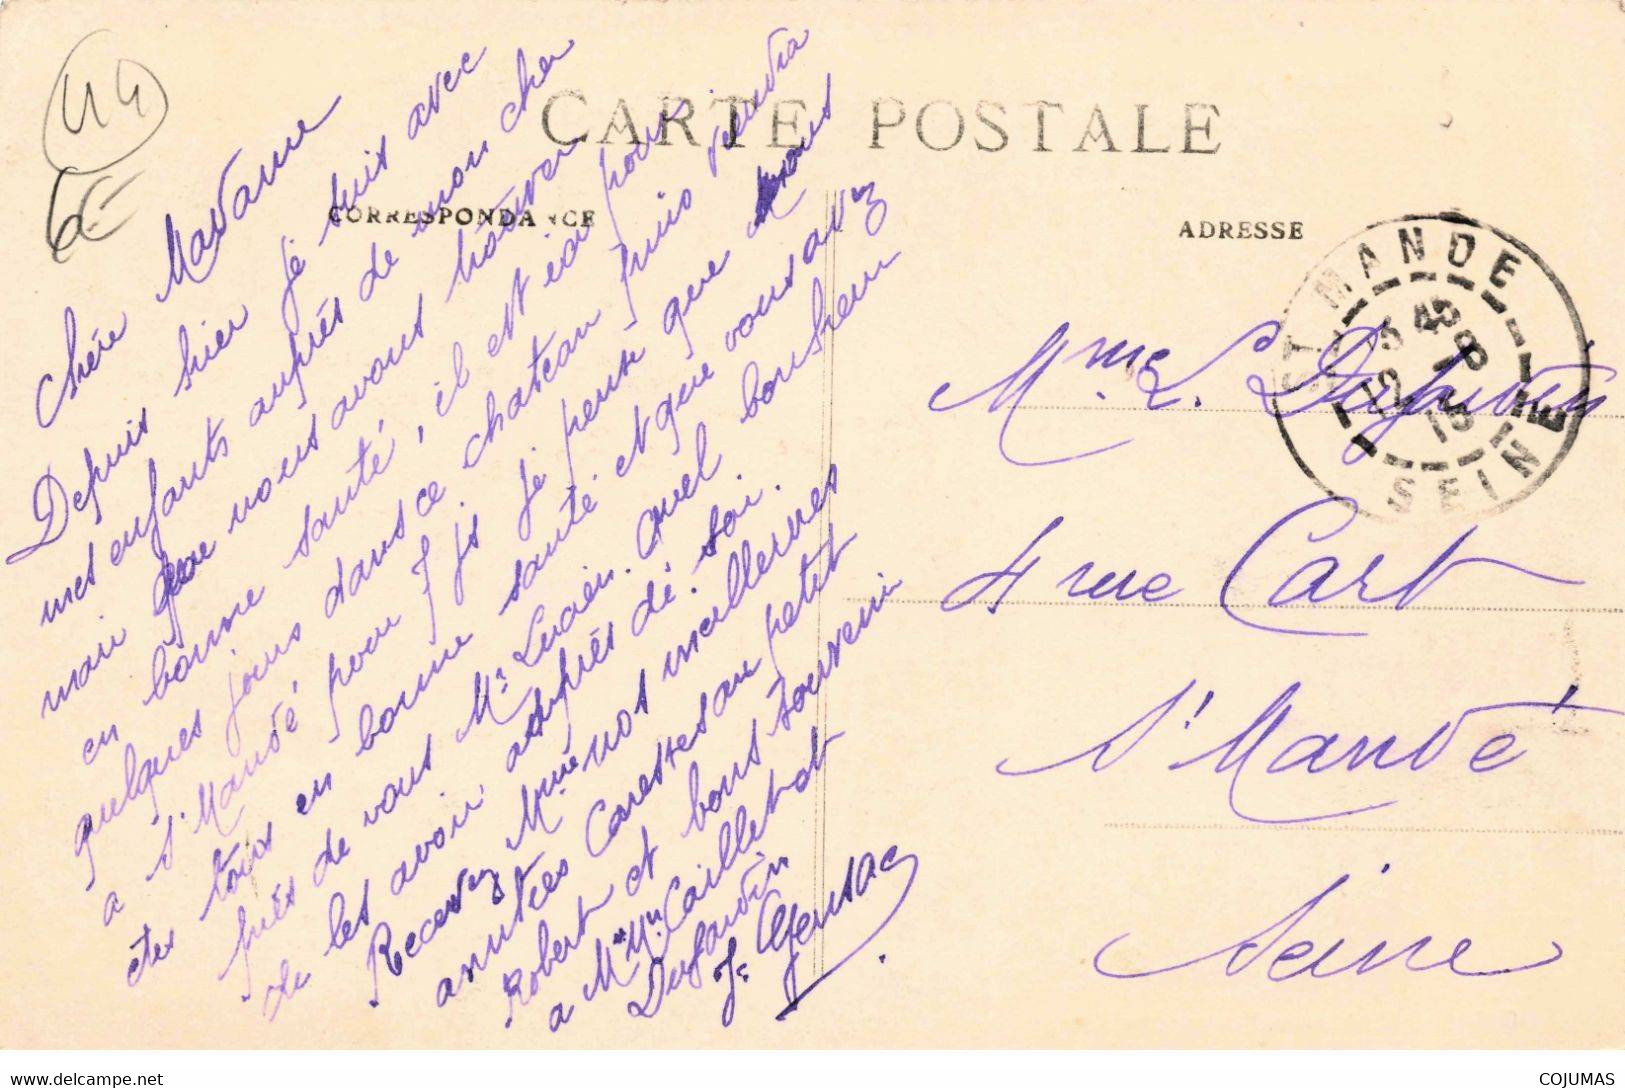 44
6€
CARTE POSTALE
CORRESPONDANCE
ADRESSE
Chère Madame
Depuis hier je suis avec
mes enfants auprès de mon cher
mari que nous avons trouver
en bonne santé, il est ici pour
quelques jours dans ce chateau puis reviendra
a St Mandé pour je pense que vous
etes tous en bonne santé et que vous avez
près de vous Mr Lucien. Quel bonheur
de les avoir auprès de soi.
Recevez Mme nos meilleures
amitiés Caresses au petit
Robert et bons souvenir
a Mr Mme Cailletot
Dujardin
J.
Mme L. Dujardin
4 rue Cart
St Mandé
Seine
ST MANDE
12 - 8
15
SEINE
www.delcampe.net
COJUMAS